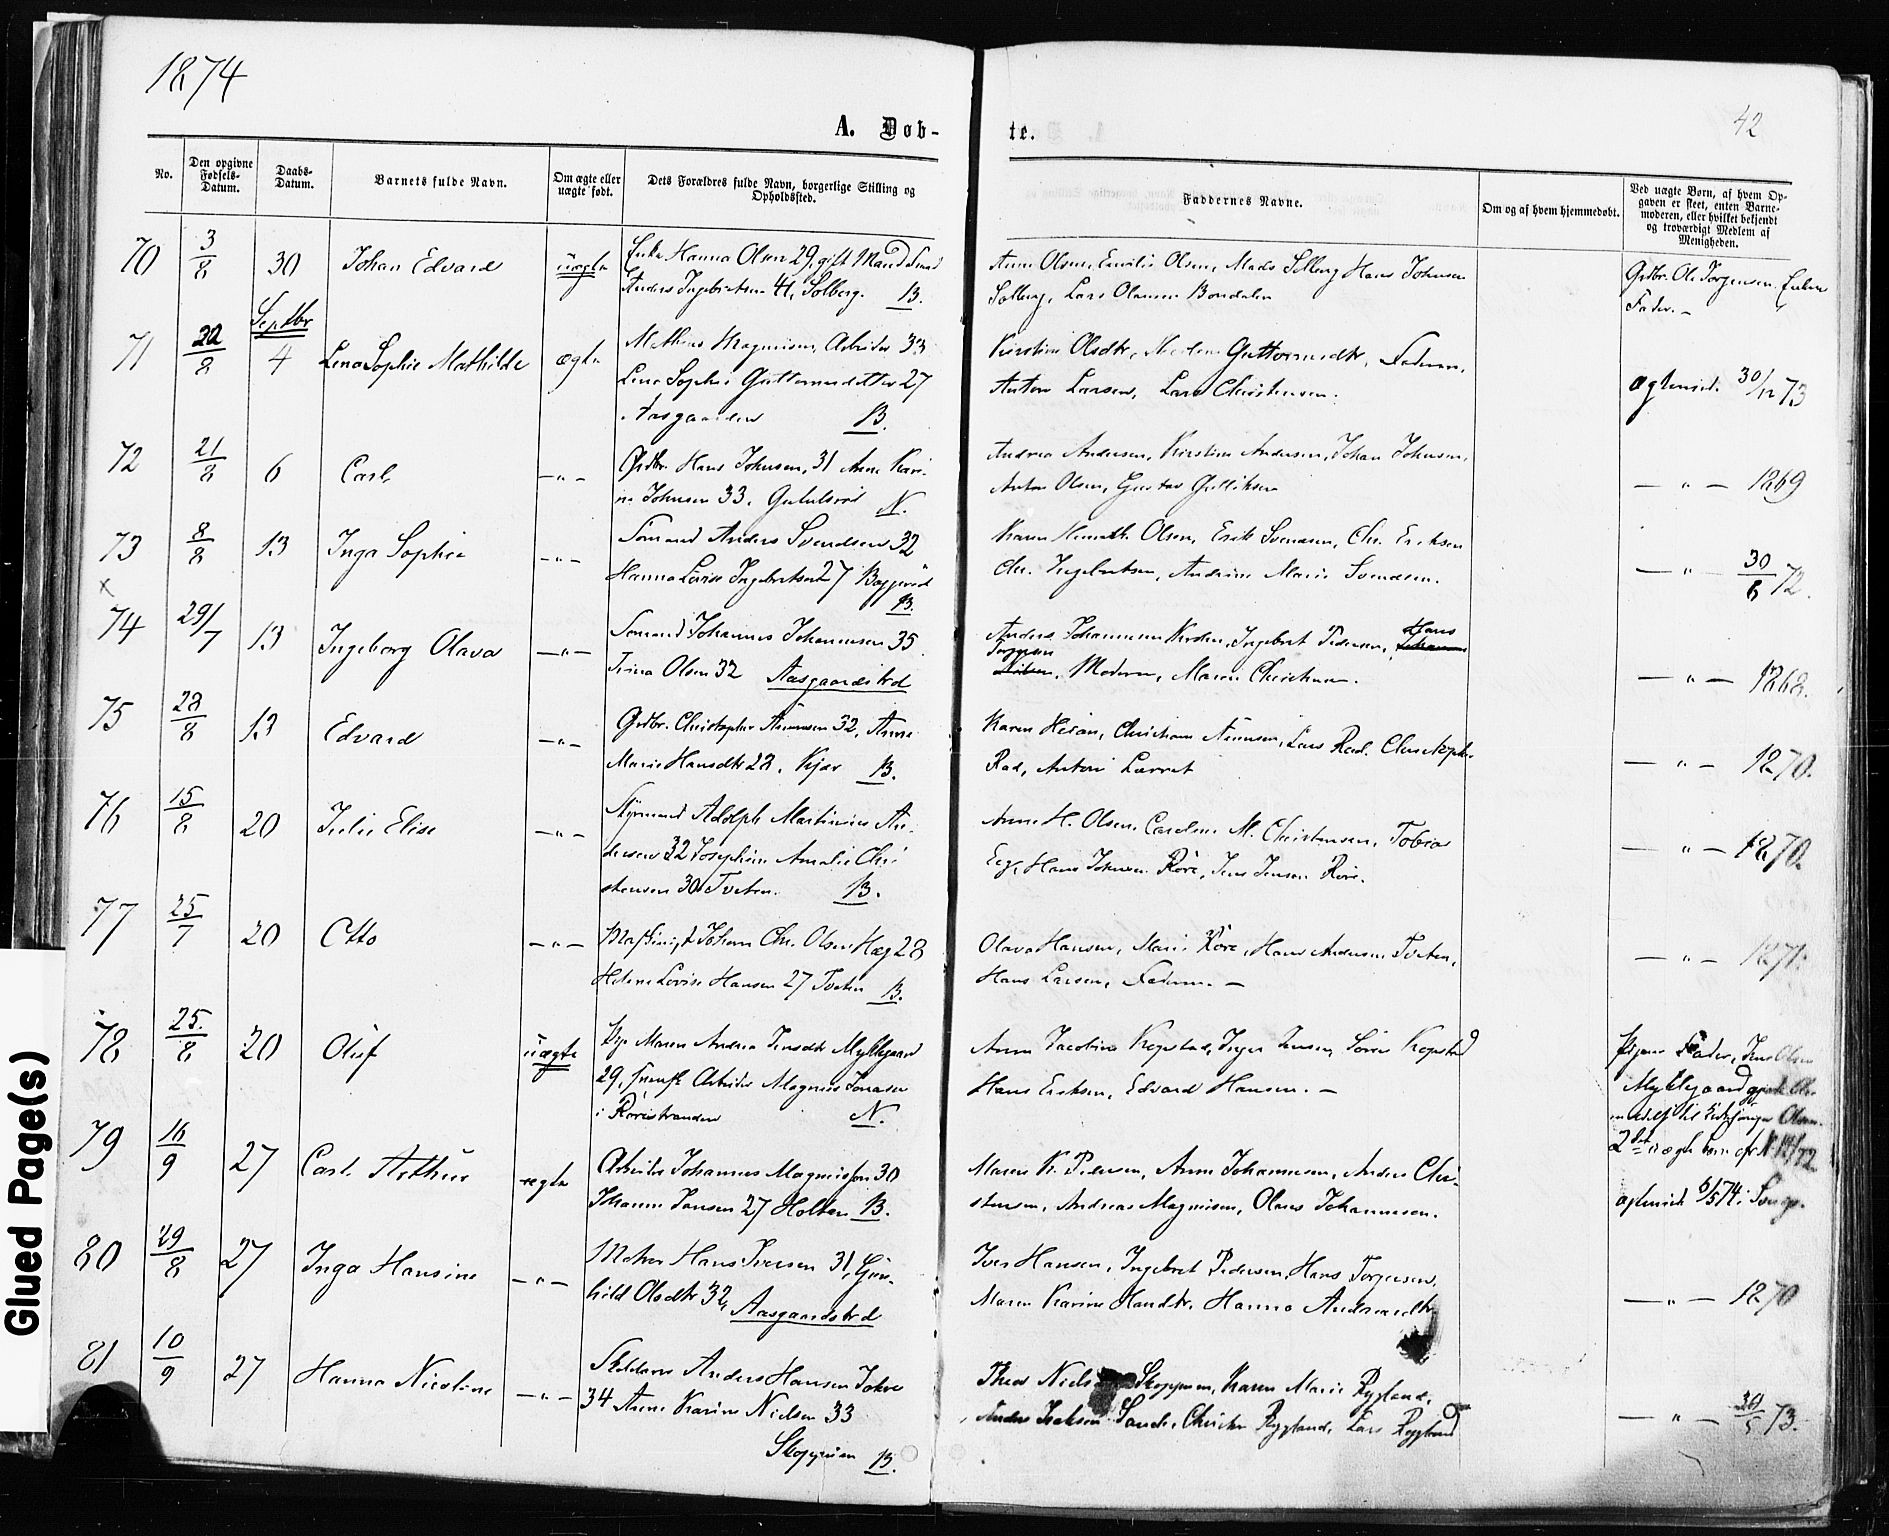 1874
42
A. Døb-
te.
No.
Den opgivne Fødsels-Datum.
Daabs-Datum.
Barnets fulde Navn.
Om ægte eller uægte født.
Dets Forældres fulde Navn, borgerlige Stilling og Opholdssted.
Faddernes Navne.
Om og af hvem hjemmedøbt.
Ved uægte Børn, af hvem Opgaven er skeet, enten Barnemoderen, eller hvilket bekjendt og troværdigt Medlem af Menigheden.
70 3/8 30 Johan Edvard uægte Enke Hanna Olsen 29, gift Mand
Anders Ingebretsen 41, Solberg. B.
Anne Olsen, Emilie Olsen, Mads Solberg Hans Johnsen
Solberg, Lars Olausen Bondalen
Grdbr. Ole Jørgensen, Enkens
Fader. –
Septbr
71 22/8 4 Lena Sophie Mathilde ægte Mathias Magnusen, Arbeider 33
Lena Sophie Guttormsdatter 27
Aasgaarden B.
Kirstine Olsdtr, Guttormsdtr, Faderen,
Anton Larsen, Lars Christensen.
ægteviet 30/12 73
72 21/8 6 Carl – " – Grdbr. Hans Johnsen, 31 Anne Kari-
ne Johnsen 33. N.
Andrea Andersen, Kirstine Andersen, Johan Johnsen,
Anton Olsen, Gustav Gulliksen
– " – 1869
73 8/8 13 Inga Sophie – " – Sømand Anders Svendsen 32
Hanna Lovise Ingebretsen 27 B.
Karen Olsen, Erik Svendsen, Chr. Eriksen
Chr. Ingebretsen, Andrine Marie Svendsen.
– " – 30/6 72.
x
74 29/7 13 Ingeborg Olava – " – Sømand Johannes Johannesen 35
Trina Olsen 32 Aasgaardstrd
Anders Johannesen, Ingebret Pedersen, Hans
Torgersen, Moderen, Maren Christensen.
– " – 1868.
75 28/8 13 Edvard – " – Grdbr. Christopher 32, Anne
Marie Hansdtr 22, Kjær B.
Karen Christiane Lars Rød, Christopher
Rød, Anton
– " – 1870.
76 15/8 20 Julie Elise – " – Styrmand Adolph Martinius An-
dersen 32 Josephine Amalie Chri-
stensen 30 Tveten. B.
Anne H. Olsen, Caroline M. Christensen, Tobias
Eeg, Hans Johnsen Røre, Jens Jensen Røre.
– " – 1870.
77 25/7 20 Otto – " – Maskinist Johan Chr. Olsen Hæg 28
Helene Lovise Hansen 27 Tveten B.
Olava Hansen, Marie Røre, Hans Andersen Tveten,
Hans Larsen, Faderen. –
– " – 1871.
78 25/8 20 Oluf uægte Pige Maren Andrea Jensdtr Myklegaard
29, svensk Arbeider Magnus Jonasen
i Rørestranden N.
Anne Jacobine Kopstad, Inger Jensen, Søren Kopstad
Hans Eriksen, Edvard Hansen. –
Pigens Fader, Jens Olsen
Myklegaard
2det uægte barn cfr N 14/72
79 16/9 27 Carl Arthur ægte Arbeider Johannes Magnussen 30
Johanne Jansen 27 Holtan B.
Maren K. Pedersen, Anne Johannesen, Anders Chri-
stensen, Andreas Magnusen, Olaus Johannesen.
ægteviet 6/5 74 i
80 29/8 27 Inga Hansine – " – Matros Hans Iversen 31, Gun-
hild Olsdtr 32, Aasgaardstrd
Iver Hansen, Ingebret Pedersen, Hans Torgersen,
Maren Karine Hansdtr, Hanna Andreasdtr
– " – 1870
81 10/9 27 Hanna Nicoline – " – Anders Hansen
34 Anne Karine Nielsen 33
Skoppum B.
Thea Skoppum, Karen Marie Rygland,
Anders Isaksen Sande, Christen Rygland, Lars Rygland
– " – 30/5 73.
Glued Page(s)